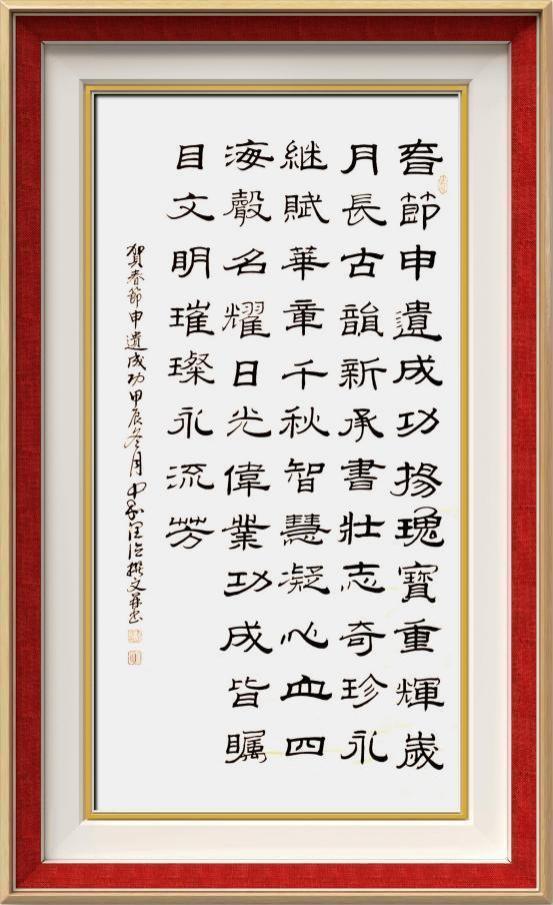 春節申遺成功揚瑰寶重輝歲
月長古韻新承書壯志奇珍永
继賦華章千秋智慧凝心血四
海聲名耀日光偉業功成皆矚
目文明璀璨永流芳
賀春節申遺成功甲辰冬月撰文并書